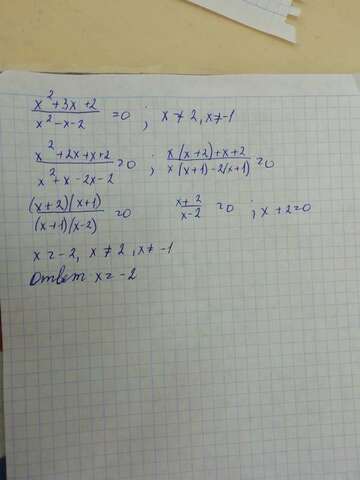 x²+3x+2 / x²-x-2 =0 ; x≠2, x≠-1
x²+2x+x+2 / x²+x-2x-2 =0 ; x(x+2)+x+2 / x(x+1)-2(x+1) =0
(x+2)(x+1) / (x+1)(x-2) =0 x+2 / x-2 =0 ; x+2=0
x=-2, x≠2, x≠-1
Ответ x=-2